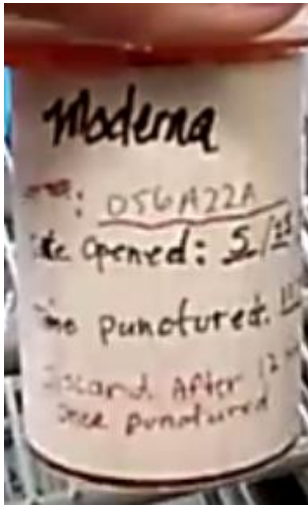 Moderna
: 056A22A
Opened: 5/
punctured:
Discard After 12
once punctured